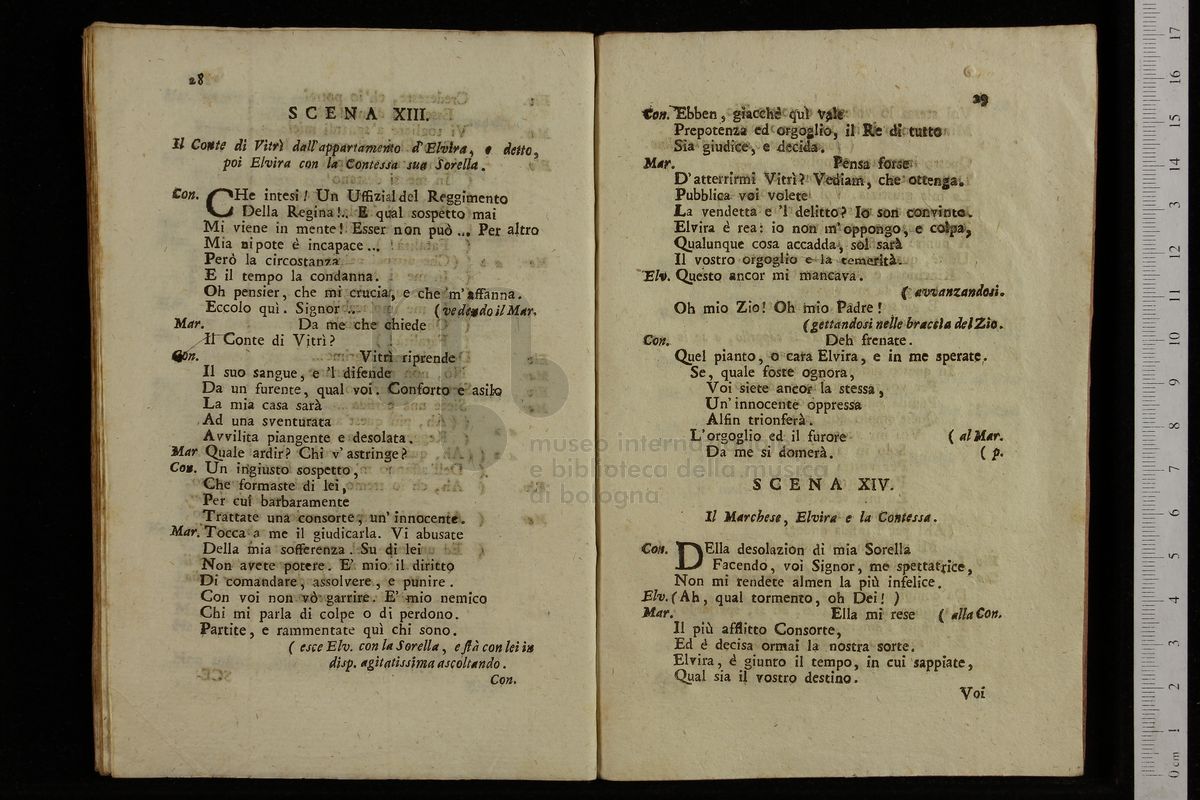 28
SCENA XIII.
Il Conte di Vitrì dall'appartamento d'Elvira, e detto,
poi Elvira con la Contessa sua Sorella.
Con. CHe intesi! Un Uffizial del Reggimento
Della Regina!.. E qual sospetto mai
Mi viene in mente! Esser non può ... Per altro
Mia nipote è incapace ...
Però la circostanza
E il tempo la condanna.
Oh pensier, che mi crucia, e che m'affanna.
Eccolo quì. Signor ... (vedendo il Mar.
Mar. Da me che chiede
Il Conte di Vitrì?
Con. Vitrì riprende
Il suo sangue, e 'l difende
Da un furente, qual voi. Conforto e asilo
La mia casa sarà
Ad una sventurata
Avvilita piangente e desolata.
Mar Quale ardir? Chi v'astringe?
Con. Un ingiusto sospetto,
Che formaste di lei,
Per cui barbaramente
Trattate una consorte, un' innocente.
Mar. Tocca a me il giudicarla. Vi abusate
Della mia sofferenza. Su di lei
Non avete potere. E' mio il diritto
Di comandare, assolvere, e punire.
Con voi non vò garrire. E' mio nemico
Chi mi parla di colpe o di perdono.
Partite, e rammentate quì chi sono.
( esce Elv. con la Sorella, e stà con lei in
disp. agitatissima ascoltando.
Con.
29
Con. Ebben, giacchè quì vale
Prepotenza ed orgoglio, il Re di tutto
Sia giudice, e decida.
Mar. Pensa forse
D'atterrirmi Vitrì? Vediam, che ottenga.
Pubblica voi volete
La vendetta e 'l delitto? Io son convinto.
Elvira è rea: io non m'oppongo, e colpa,
Qualunque cosa accadda, sol sarà
Il vostro orgoglio e la temerità.
Elv. Questo ancor mi mancava.
( avvanzandosi.
Oh mio Zio! Oh mio Padre!
(gettandosi nelle braccia del Zio.
Con. Deh frenate.
Quel pianto, o cara Elvira, e in me sperate.
Se, quale foste ognora,
Voi siete ancor la stessa,
Un' innocente oppressa
Alfin trionferà.
L'orgoglio ed il furore ( al Mar.
Da me si domerà. ( p.
SCENA XIV.
Il Marchese, Elvira e la Contessa.
Con. DElla desolazion di mia Sorella
Facendo, voi Signor, me spettatrice,
Non mi rendete almen la più infelice.
Elv. (Ah, qual tormento, oh Dei! )
Mar. Ella mi rese ( alla Con.
Il più afflitto Consorte,
Ed è decisa ormai la nostra sorte.
Elvira, è giunto il tempo, in cui sappiate,
Qual sia il vostro destino.
Voi
museo internazionale
e biblioteca della musica
di bologna